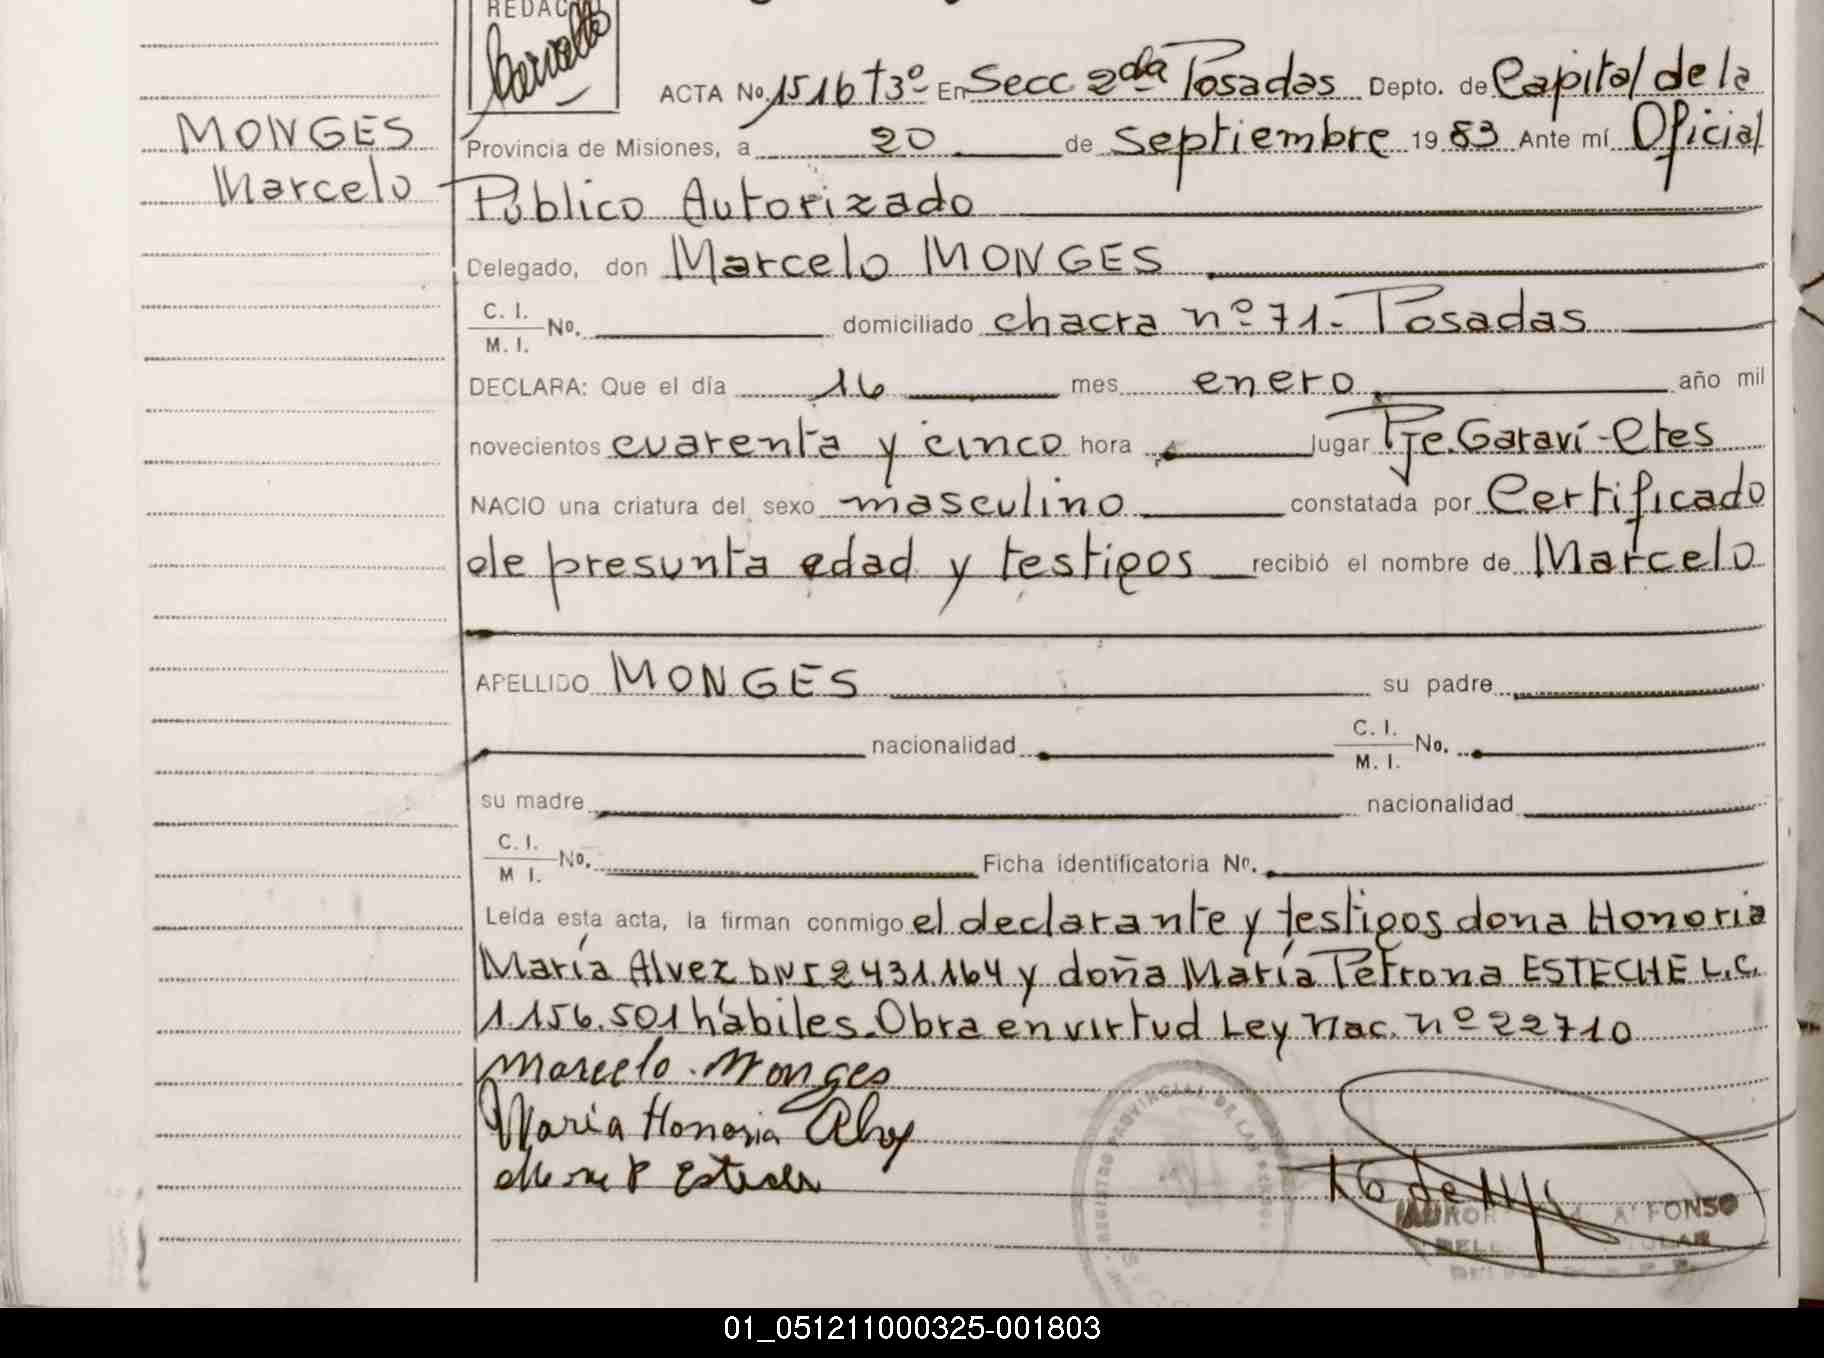 REDAC
ACTA No. 1516 t3º En Secc 2da Posadas Depto. de Capital de la
MONGES
Marcelo
Provincia de Misiones, a 20 de septiembre 1983 Ante mí Oficial
Público Autorizado
Delegado, don Marcelo MONGES
C. I.
M. I. No. domiciliado chacra nº 71 - Posadas
DECLARA: Que el día 16 mes enero año mil
novecientos cuarenta y cinco hora lugar Pje. Garaví - Ctes
NACIO una criatura del sexo masculino constatada por Certificado
de presunta edad y testigos recibió el nombre de Marcelo
APELLIDO MONGES su padre
nacionalidad C. I.
M. I. No.
su madre nacionalidad
C. I.
M I. No. Ficha identificatoria Nº.
Leída esta acta, la firman conmigo el declarante y testigos dona Honoria
María Alvez DNI 2431.164 y doña María Petrona ESTECHE L.C.
1.156.501 hábiles. Obra en virtud Ley Nac. nº 22710
Marcelo. Monges
Maria Honoria
REGISTRO PROVINCIAL DE LAS
16 de
ALFONSO
01_051211000325-001803